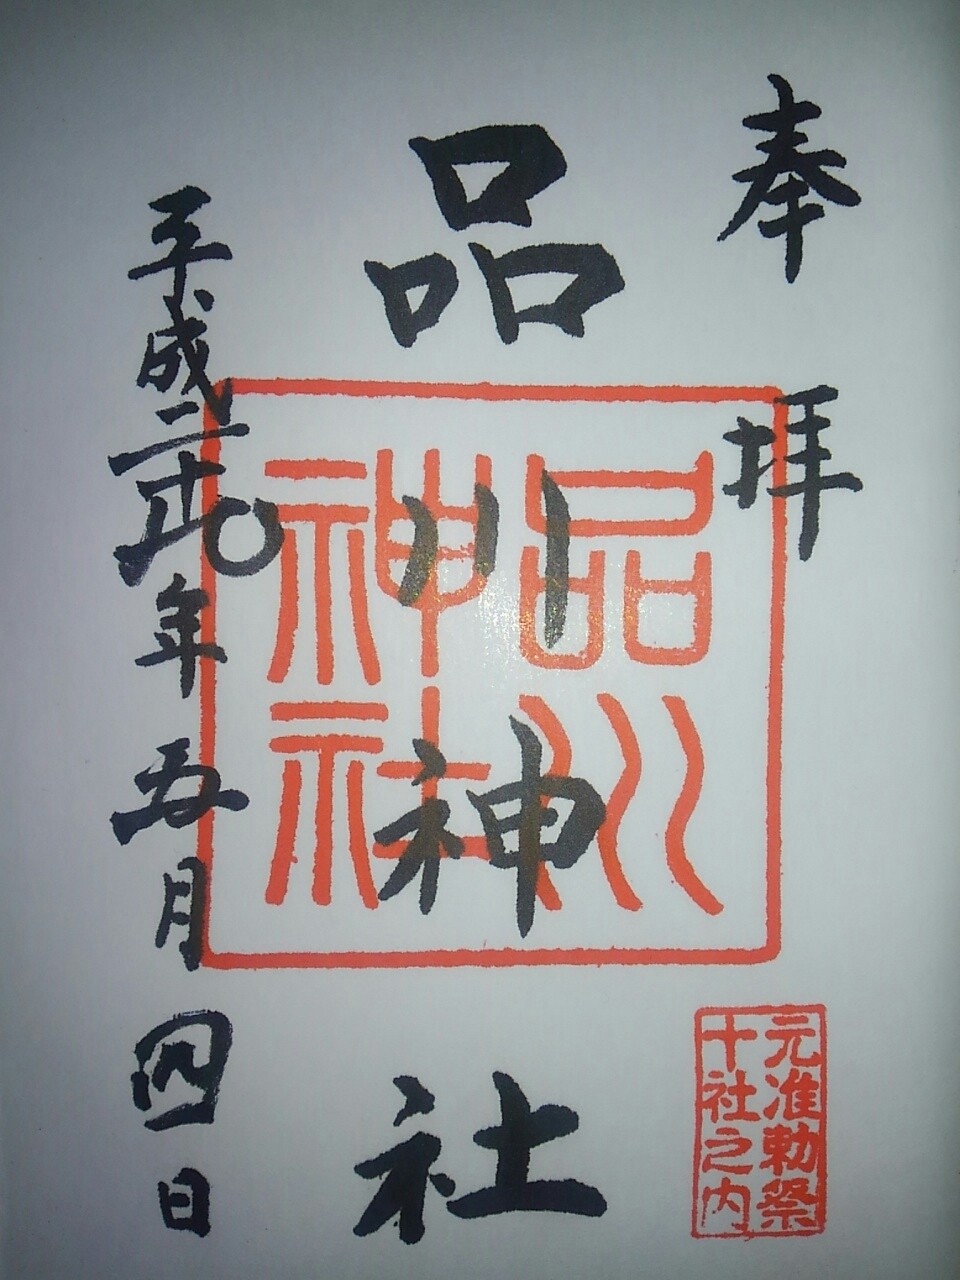 奉拝
品川神社
平成二十九年五月四日
品川
神社
元准勅祭
十社之内